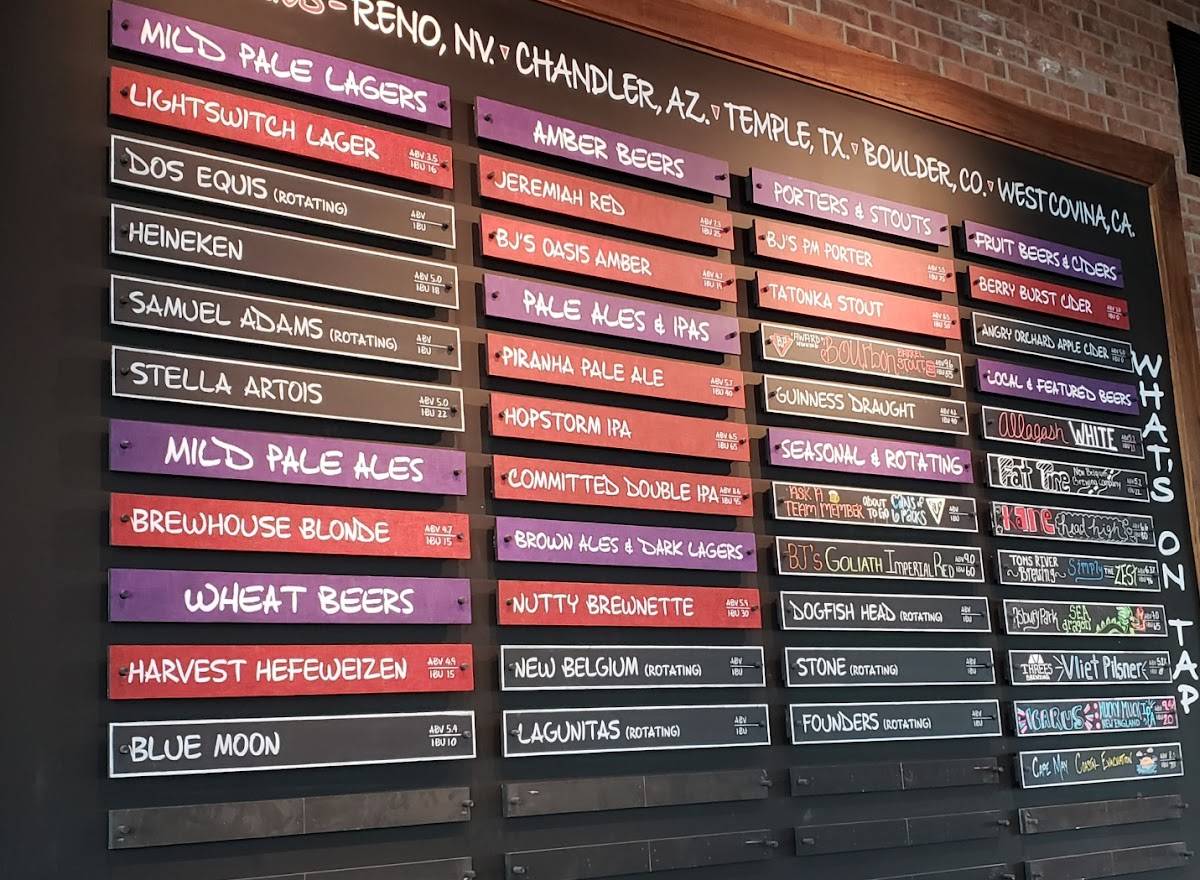 - RENO, NV. CHANDLER, AZ. TEMPLE, TX. BOULDER, CO. WEST COVINA, CA.
MILD PALE LAGERS
LIGHTSWITCH LAGER ABV 3.5 IBU 16
DOS EQUIS (ROTATING) ABV IBU
HEINEKEN ABV 5.0 IBU 18
SAMUEL ADAMS (ROTATING) ABV IBU
STELLA ARTOIS ABV 5.0 IBU 22
MILD PALE ALES
BREWHOUSE BLONDE ABV 4.7 IBU 15
WHEAT BEERS
HARVEST HEFEWEIZEN ABV 4.9 IBU 15
BLUE MOON ABV 5.4 IBU 10
AMBER BEERS
JEREMIAH RED ABV 7.3 IBU 25
BJ'S OASIS AMBER ABV 4.7 IBU 19
PALE ALES & IPAS
PIRANHA PALE ALE ABV 5.7 IBU 40
HOPSTORM IPA ABV 6.5 IBU 65
COMMITTED DOUBLE IPA ABV IBU
BROWN ALES & DARK LAGERS
NUTTY BREWNETTE ABV 5.9 IBU 30
NEW BELGIUM (ROTATING) ABV IBU
LAGUNITAS (ROTATING) ABV IBU
PORTERS & STOUTS
BJ'S PM PORTER ABV IBU
TATONKA STOUT ABV IBU
BJ'S "AWARD WINNING" BOURBON BARREL STOUT
GUINNESS DRAUGHT ABV IBU
SEASONAL & ROTATING
ASK A TEAM MEMBER ABOUT CANS & TO GO 6 PACKS ABV IBU
BJ'S GOLIATH IMPERIAL RED ABV 9.0 IBU 60
DOGFISH HEAD (ROTATING) ABV IBU
STONE (ROTATING) ABV IBU
FOUNDERS (ROTATING) ABV IBU
FRUIT BEERS & CIDERS
BERRY BURST CIDER ABV IBU
ANGRY ORCHARD APPLE CIDER ABV IBU
LOCAL & FEATURED BEERS
Allagash WHITE
Fat Tire New Belgium Brewing Company ABV 5.2
Kane head high
TOMS RIVER Brewing Simply THE ZEST
Asbury Park SEA dragon
THREES BREWING Vliet Pilsner
ICARUS YUCKY MUCK NEW ENGLAND IPA
CAPE MAY COASTAL EVACUATION
WHAT'S ON TAP